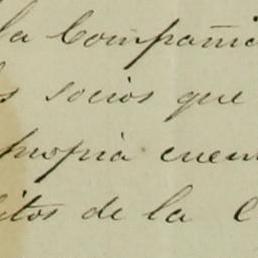 la Compañia
s socios que
propia cuen
itos de la C